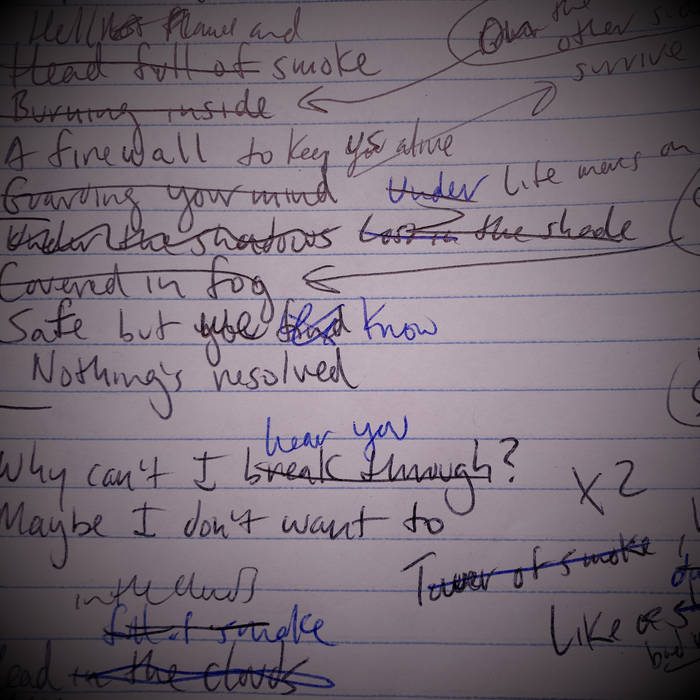 Flames and
Over the
other
survive
Head full of smoke
Burning inside
A firewall to keep alive
Guarding your mind Under Life means on
Under the shadows Lost in the shade
Covered in fog
Safe but you find Know
Nothing's resolved
hear you
Why can't I break through?
x2
Maybe I don't want to
Tower of smoke
in the clouds
full of smoke
Like
in the clouds